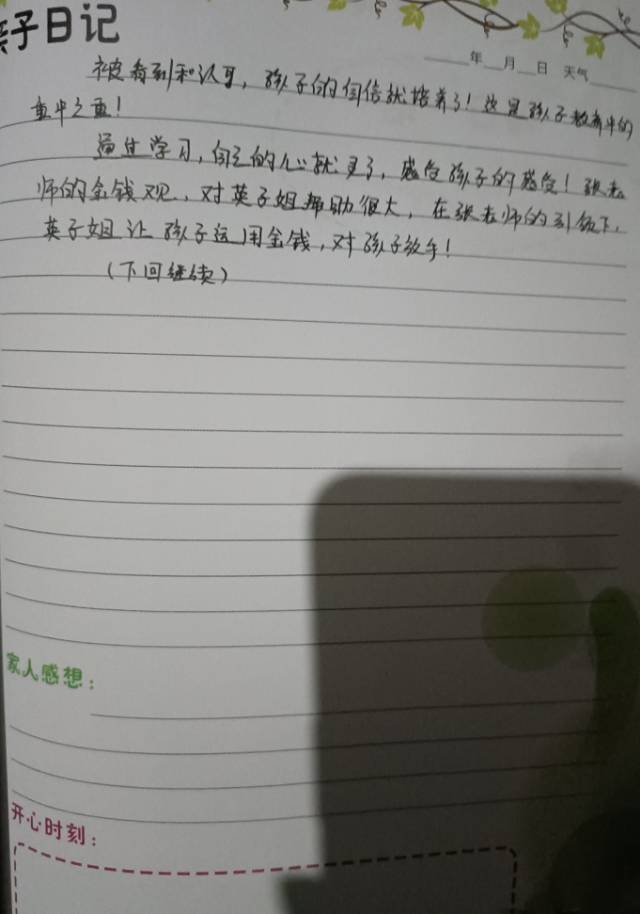 亲子日记
年 月 日 天气
被看到和认可，孩子的自信就培养了！这是孩子教育中的
重中之重！
通过学习，自己的心就更了，感受孩子的感受！张老
师的金钱观，对英子姐帮助很大，在张老师的引领下，
英子姐让孩子运用金钱，对孩子放手！
（下回继续）
家人感想：
开心时刻：